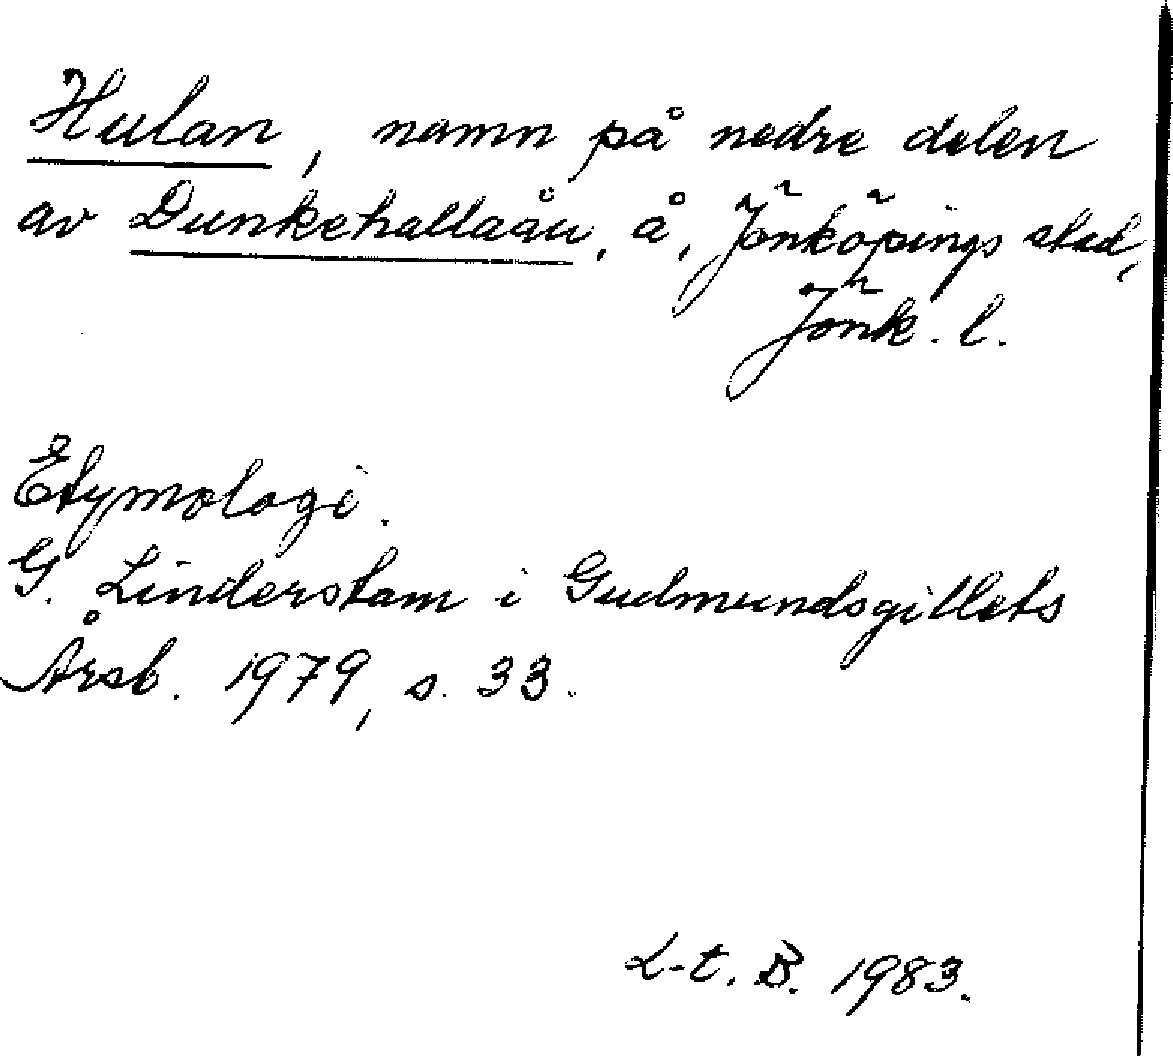 Hulan, namn på nedre delen
av Dunkehallaån, å, Jönköpings stad,
Jönk. l.
Etymologi.
G. Linderstam i Gudmundsgillets
Årsb. 1979, s. 33.
L-t. B. 1983.